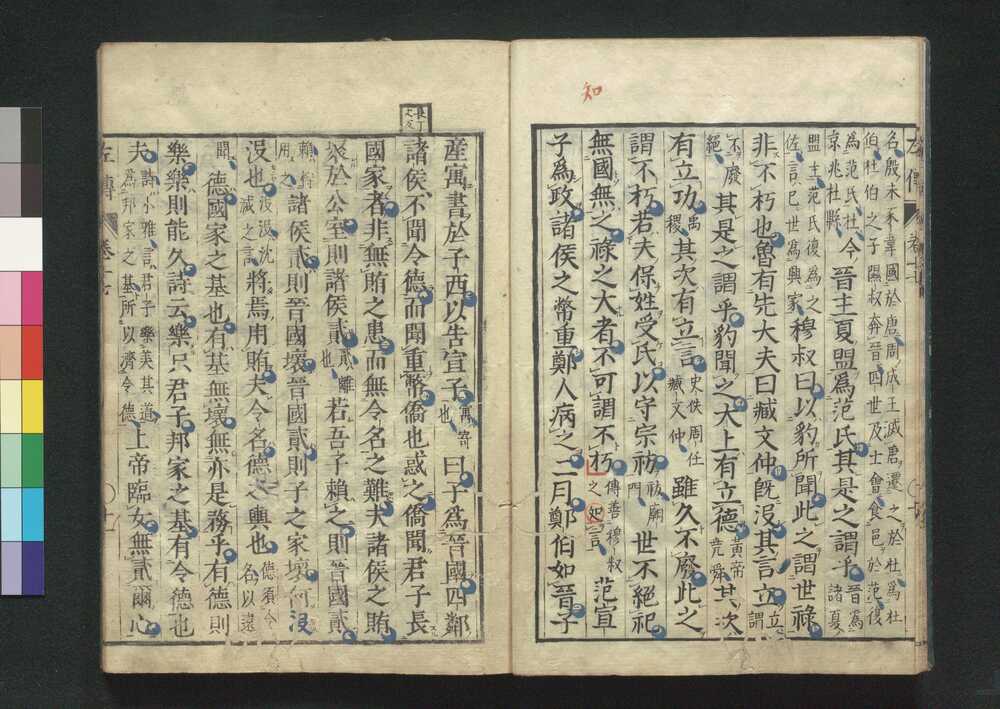 左傳 卷十七
知
名殷末豕韋國於唐周成王滅唐遷之於杜爲杜
伯杜伯之子隰叔奔晉四世及士會食邑於范復
爲范氏杜今京兆杜縣晉主夏盟爲范氏其是之謂乎晉爲諸夏
盟主范氏復爲之佐言己世爲興家穆叔曰以豹所聞此之謂世祿
非不朽也魯有先大夫曰臧文仲旣沒其言立立謂
不廢絕其是之謂乎豹聞之大上有立德黃帝堯舜其次
有立功禹稷其次有立言史佚周任臧文仲雖久不廢此之
謂不朽若夫保姓受氏以守宗祊祊廟門世不絕祀
無國無之祿之大者不可謂不朽傳善穆叔之知言范宣
子爲政諸侯之幣重鄭人病之二月鄭伯如晉子
產寓書於子西以吿宣子寓寄也曰子爲晉國四鄰
諸侯不聞令德而聞重幣僑也惑之僑聞君子長
國家者非無賄之患而無令名之難夫諸侯之賄
聚於公室則諸侯貳貳離也若吾子賴之則晉國貳
賴恃用之諸侯貳則晉國壞晉國貳則子之家壞何沒
沒也沒沒沈滅之言將焉用賄夫令名德之輿也德須令名以遠
聞德國家之基也有基無壞無亦是務乎有德則
樂樂則能久詩云樂只君子邦家之基有令德也
夫詩小雅言君子樂美其道爲邦家之基所以濟令德上帝臨女無貳爾心
左傳 卷十七